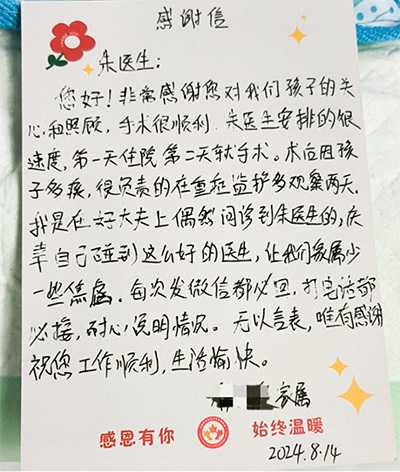 感谢信
朱医生:
您好!非常感谢您对我们孩子的关
心和照顾,手术很顺利.朱医生安排的很
速度,第一天住院第二天就手术。术后因孩
子多痰,很负责的在重症监护多观察两天.
我是在好大夫上偶然问诊到朱医生的,庆
幸自己碰到这么好的医生,让我们家属少
一些焦虑.每次发微信都必回,打电话都
必接,耐心说明情况。无以言表,唯有感谢
祝您工作顺利,生活愉快。
家属
感恩有你 始终温暖
2024.8.14